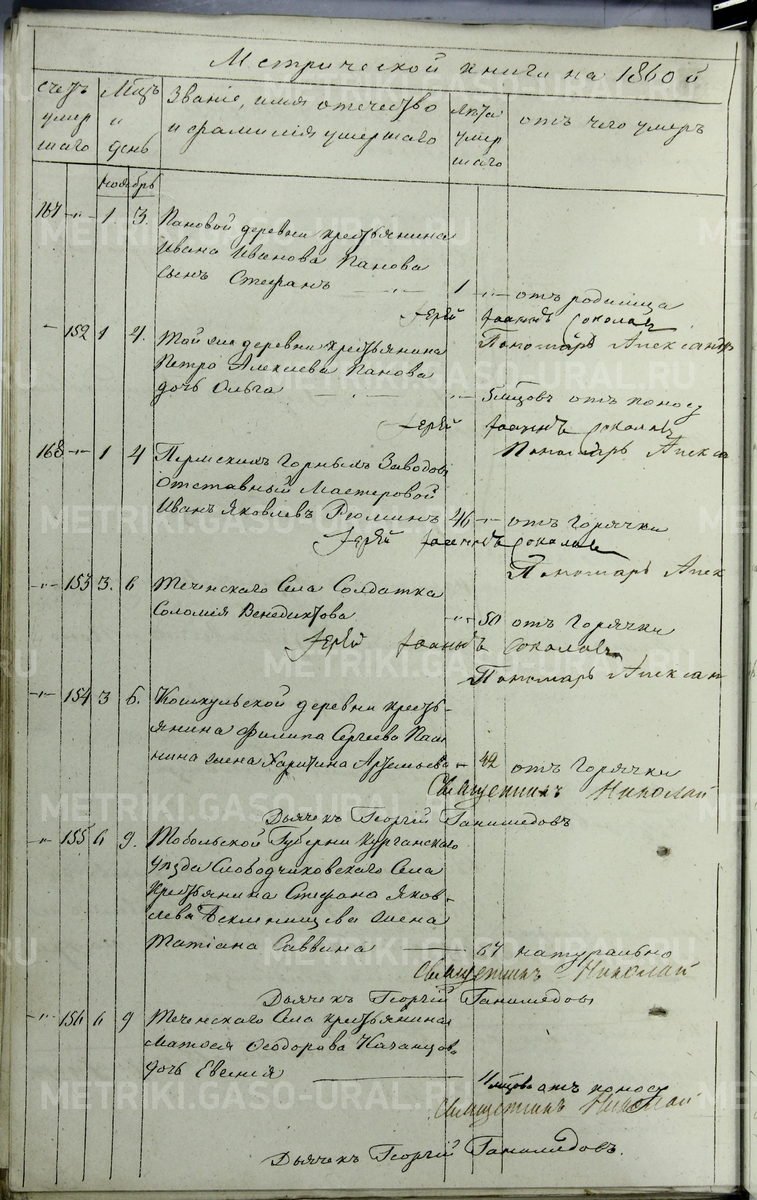 Метрической книги на 1860й
счетъ умершаго
Мцъ и день
Званіе, имя отечество и фамилія умершаго
лѣта умершаго
отъ чего умеръ
ноябрь
167 -"- 1 3. Пановой деревни крестьянина
Ивана Иванова Панова
сынъ Стефанъ -"- 1 -"- отъ родимца
Іерей Іоаннъ Соколов
Пономарь Александр
- 152 1 4. Той же деревни крестьянина
Петра Алексеева Панова
дочь Ольга -"- 5 мцовъ отъ поносу
Іерей Іоаннъ Соколов
Пономарь Алекса
168 -"- 1 4 Пермскихъ Горныхъ Заводовъ
Отставный Мастеровой
Иванъ Яковлевъ Рюминъ 46 -"- отъ Горячки
Іерей Іоаннъ Соколов
Пономарь Алек
-"- 153 3. 6 Теченскаго Села Солдатка
Соломія Венедиктова -"- 50 отъ Горячки
Іерей Іоаннъ Соколов
Пономарь Алексан
-"- 154 3 6. Кошкульской деревни кресть-
янина Филипа Сергеева
жена Харитина Артемьева - 42 отъ Горячки
Священникъ Николай
Дьячекъ Георгій Ганимедовъ
" 155 6 9. Тобольской Губерни Курганскаго
уѣзда Слободчиковскаго Села
Крестьянина Стефана Яков-
лева Бекленищева жена
Татіана Саввина 67 натурально
Священникъ Николай
Дьячекъ Георгій Ганимедовъ
-"- 156 6 9 Теченскаго Села крестьянина
Матфея Ѳеодорова
дочь Евгенія 4 мцовъ отъ поносу
Священникъ Николай
Дьячекъ Георгій Ганимедовъ.
METRIKI.GASO-URAL.RU